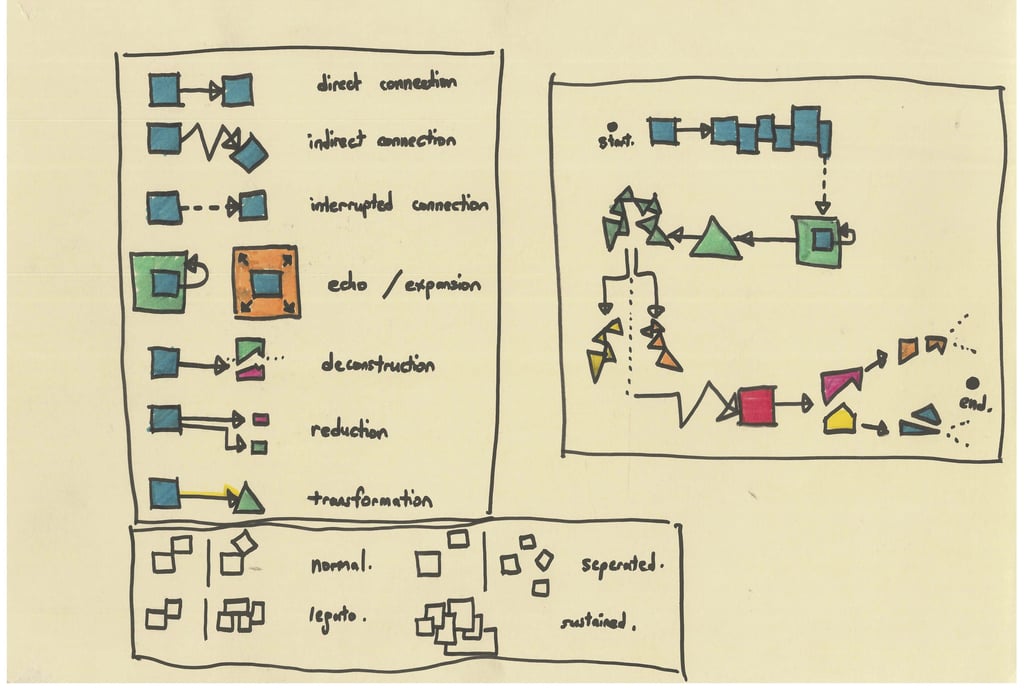 direct connection
indirect connection
interrupted connection
echo / expansion
deconstruction
reduction
transformation
normal.
seperated.
legato.
sustained.
start.
end.